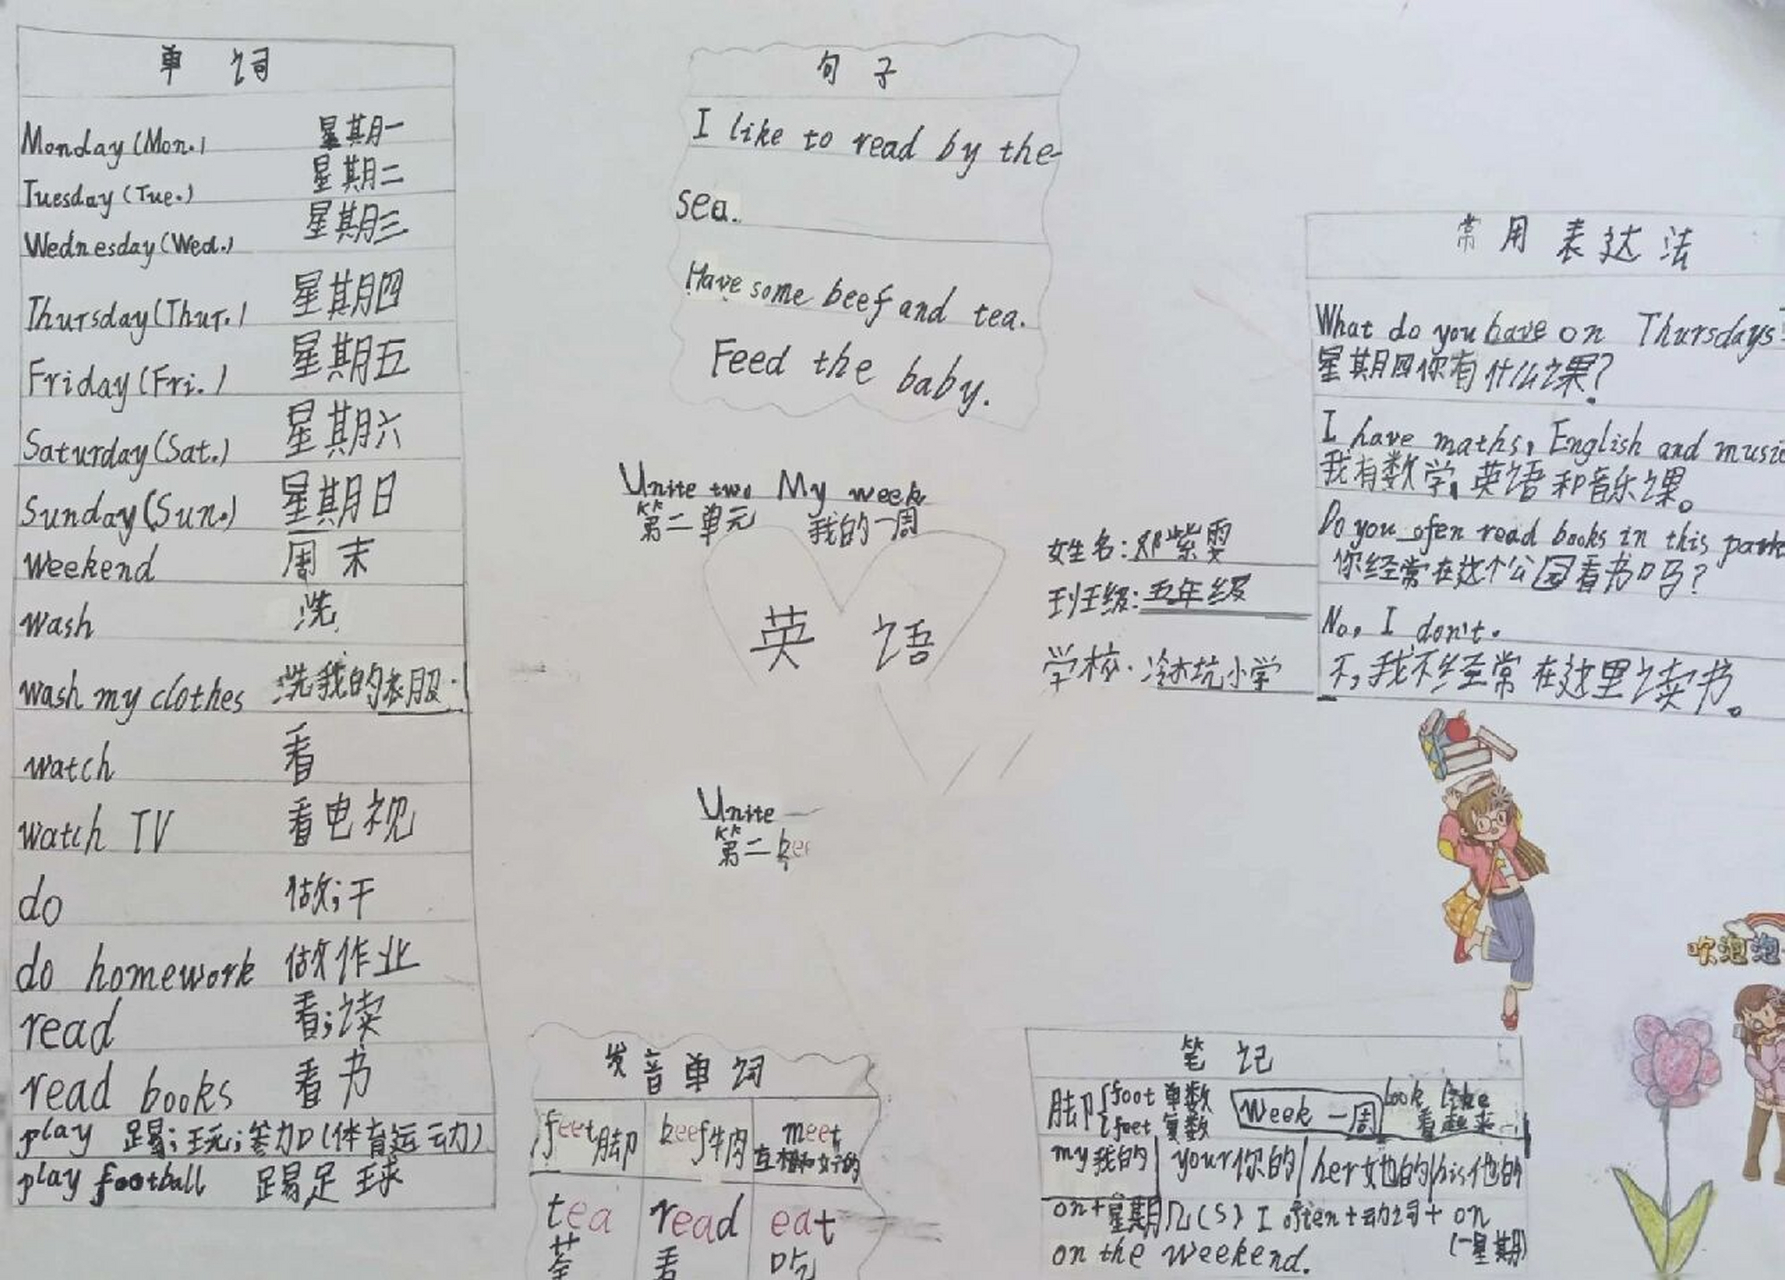 单词
Monday (Mon.) 星期一
Tuesday (Tue.) 星期二
Wednesday (Wed.) 星期三
Thursday (Thur.) 星期四
Friday (Fri.) 星期五
Saturday (Sat.) 星期六
Sunday (Sun.) 星期日
weekend 周末
wash 洗
wash my clothes 洗我的衣服.
watch 看
watch TV 看电视
do 做;干
do homework 做作业
read 看;读
read books 看书
play 踢;玩;参加(体育运动)
play football 踢足球
句子
I like to read by the
sea.
Have some beef and tea.
Feed the baby.
Unite two My week
第二单元 我的一周
英语
姓名:邓紫雯
班级:五年级
学校:冷水坑小学
Unite
第二
常用表达法
What do you have on Thursdays?
星期四你有什么课?
I have maths, English and music
我有数学,英语和音乐课。
Do you ofen read books in this park
你经常在这个公园看书吗?
No, I don't.
不,我不经常在这里读书。
发音单词
feet脚 beef牛肉 meet
tea read eat
茶 看 吃
笔记
脚{foot 单数 Week 一周 look like
{feet 复数 看起来
my我的 your你的 her她的 his他的
on+星期几(s) I often+动词+on
(一星期)
on the weekend.
吹泡泡